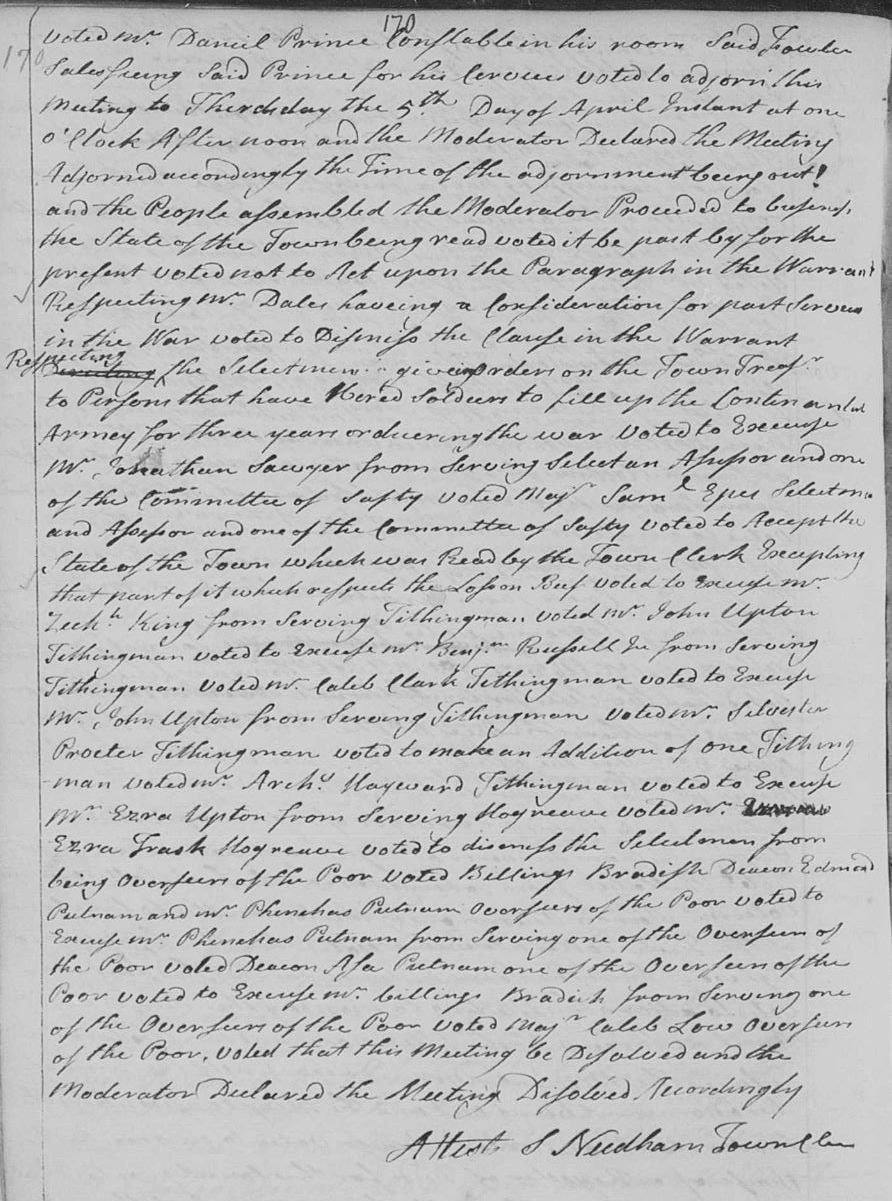 170
170
voted Mr. Daniel Prince Constable in his room Said Fowler
Satesfieing Said Prince for his Cervices voted to adjorn this
Meeting to Therdsday the 5th Day of April Instant at one
o'Clock After noon and the Moderator Declared the Meeting
Adjorned accordingly the Time of the adjornment being out
and the People assembled the Moderator Proceeded to business
the State of the Town being read voted it be past by for the
present voted not to Act upon the Paragraph in the Warrant
Respecting Mr. Dales haveing a Consideration for past Servces
in the War voted to Dismiss the Clause in the Warrant
Respecting
Directing the Selectmen giveing orders on the Town Treasr
to Persons that have Hered Soldiers to fill up the Continantal
Armey for three years or duering the war Voted to Excuse
Mr. Jonathan Sawyer from Serving Select an Assessor and one
of the Committee of Safty voted Majr Saml Epes Selectman
and Assessor and one of the Committee of Safty voted to Accept the
State of the Town which was Read by the Town Clerk Excepting
that part of it which respects the Loss on Beef voted to Excuse Mr.
Zech.h King from Serving Tithingman voted Mr. John Upton
Tithingman voted to Excuse Mr Benj.m Russell Jr from Serving
Tithingman voted Mr. Caleb Clark Tithingman voted to Excuse
Mr. John Upton from Serving Tithingman voted Mr. Silvester
Procter Tithingman voted to make an Addition of one Tithing
-man voted Mr. Arch.d Hayward Tithingman voted to Excuse
Mr. Ezra Upton from Serving Hogreave voted Mr.
Ezra Trask Hogreave voted to dismiss the Selectmen from
being Overseers of the Poor voted Billings Bradish Deacon Edmond
Putnam and Mr. Phenehas Putnam Overseers of the Poor voted to
Excuse Mr. Phenehas Putnam from Serving one of the Overseers of
the Poor voted Deacon Asa Putnam one of the Overseers of the
Poor voted to Excuse Mr. billings Bradish from Serving one
of the Overseers of the Poor voted Majr Caleb Low Overseers
of the Poor. voted that this Meeting be Disolved and the
Moderator Declared the Meeting Disolved Accordingly
Attest S Needham Town Cler